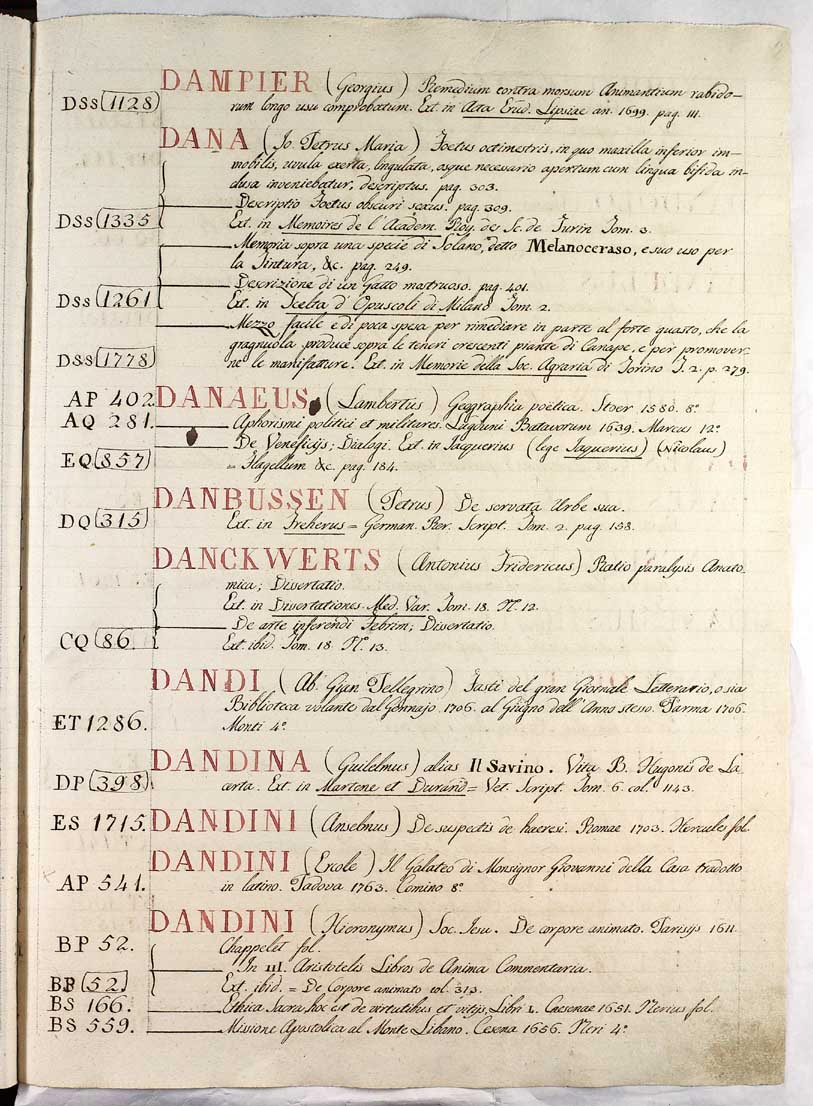 DAMPIER (Georgius) Remedium contra morsum Animantium rabido-
DSs 1128 rum longo usu comprobatum. Ext. in Acta Erud. Lipsiae an. 1699. pag. 111.
DANA (Jo. Petrus Maria) Foetus octimestris, in quo maxilla inferior im-
mobilis, uvula exerta, lingulata, osque necessario apertum cum lingua bifida in-
clusa inveniebatur, descriptus. pag. 303.
Descriptio Foetus obscuri sexus. pag. 309.
DSs 1335 Ext. in Memoires de l'Academ. Roy. des Sc. de Turin Tom. 3.
Memoria sopra una specie di Solano, detto Melanoceraso, e suo uso per
la Tintura, &c. pag. 249.
Descrizione di un Gatto mostruoso. pag. 401.
DSs 1261 Ext. in Scelta d'Opuscoli di Milano Tom. 2.
Mezzo facile e di poca spesa per rimediare in parte al forte guasto, che la
gragnuola produce sopra le teneri crescenti piante di Canape, e per promover-
DSs 1778 ne le manifatture. Ext. in Memorie della Soc. Agraria di Torino T. 2. p. 279.
AP 402. DANAEUS (Lambertus) Geographia poëtica. Stoer 1580. 8º
AQ 281. Aphorismi politici et militares. Lugduni Batavorum 1639. Marcus 12º
De Veneficijs; Dialogi. Ext. in Jacquerius (lege Jaquerius) (Nicolaus)
EQ 857 = Flagellum &c. pag. 184.
DANBUSSEN (Petrus) De servata Urbe sua.
DQ 315 Ext. in Freherus = German. Rer. Script. Tom. 2. pag. 158.
DANCKWERTS (Antonius Fridericus) Ratio paralysis Anato-
mica; Dissertatio.
Ext. in Dissertationes Med. Var. Tom. 18. Nº. 12.
De arte inferendi Febrim; Dissertatio.
CQ 86. Ext. ibid. Tom. 18. Nº. 13.
DANDI (Ab. Gian Pellegrino) Fasti del gran Giornale Letterario, o sia
Biblioteca volante dal Gennajo 1706. al Giugno dell'Anno stesso. Parma 1706.
ET 1286. Monti 4º
DANDINA (Guilelmus) alias Il Savino. Vita B. Hugonis de La-
DP 398 certa. Ext. in Martene et Durand = Vet. Script. Tom. 6. col. 1143.
ES 1715. DANDINI (Anselmus) De suspectis de haeresi. Romae 1703. Hercules fol.
DANDINI (Ercole) Il Galateo di Monsignor Giovanni della Casa tradotto
AP 541. in latino. Padova 1763. Comino 8º
DANDINI (Hieronymus) Soc. Jesu. De corpore animato. Parisijs 1611.
BP 52. Chappelet fol.
In III. Aristotelis Libros de Anima Commentaria.
BP 52. Ext. ibid. = De Corpore animato col. 313.
BS 166. Ethica Sacra, hoc est de virtutibus et vitijs, Libri L. Caesenae 1651. Nerius fol.
BS 559. Missione Apostolica al Monte Libano. Cesena 1656. Neri 4º